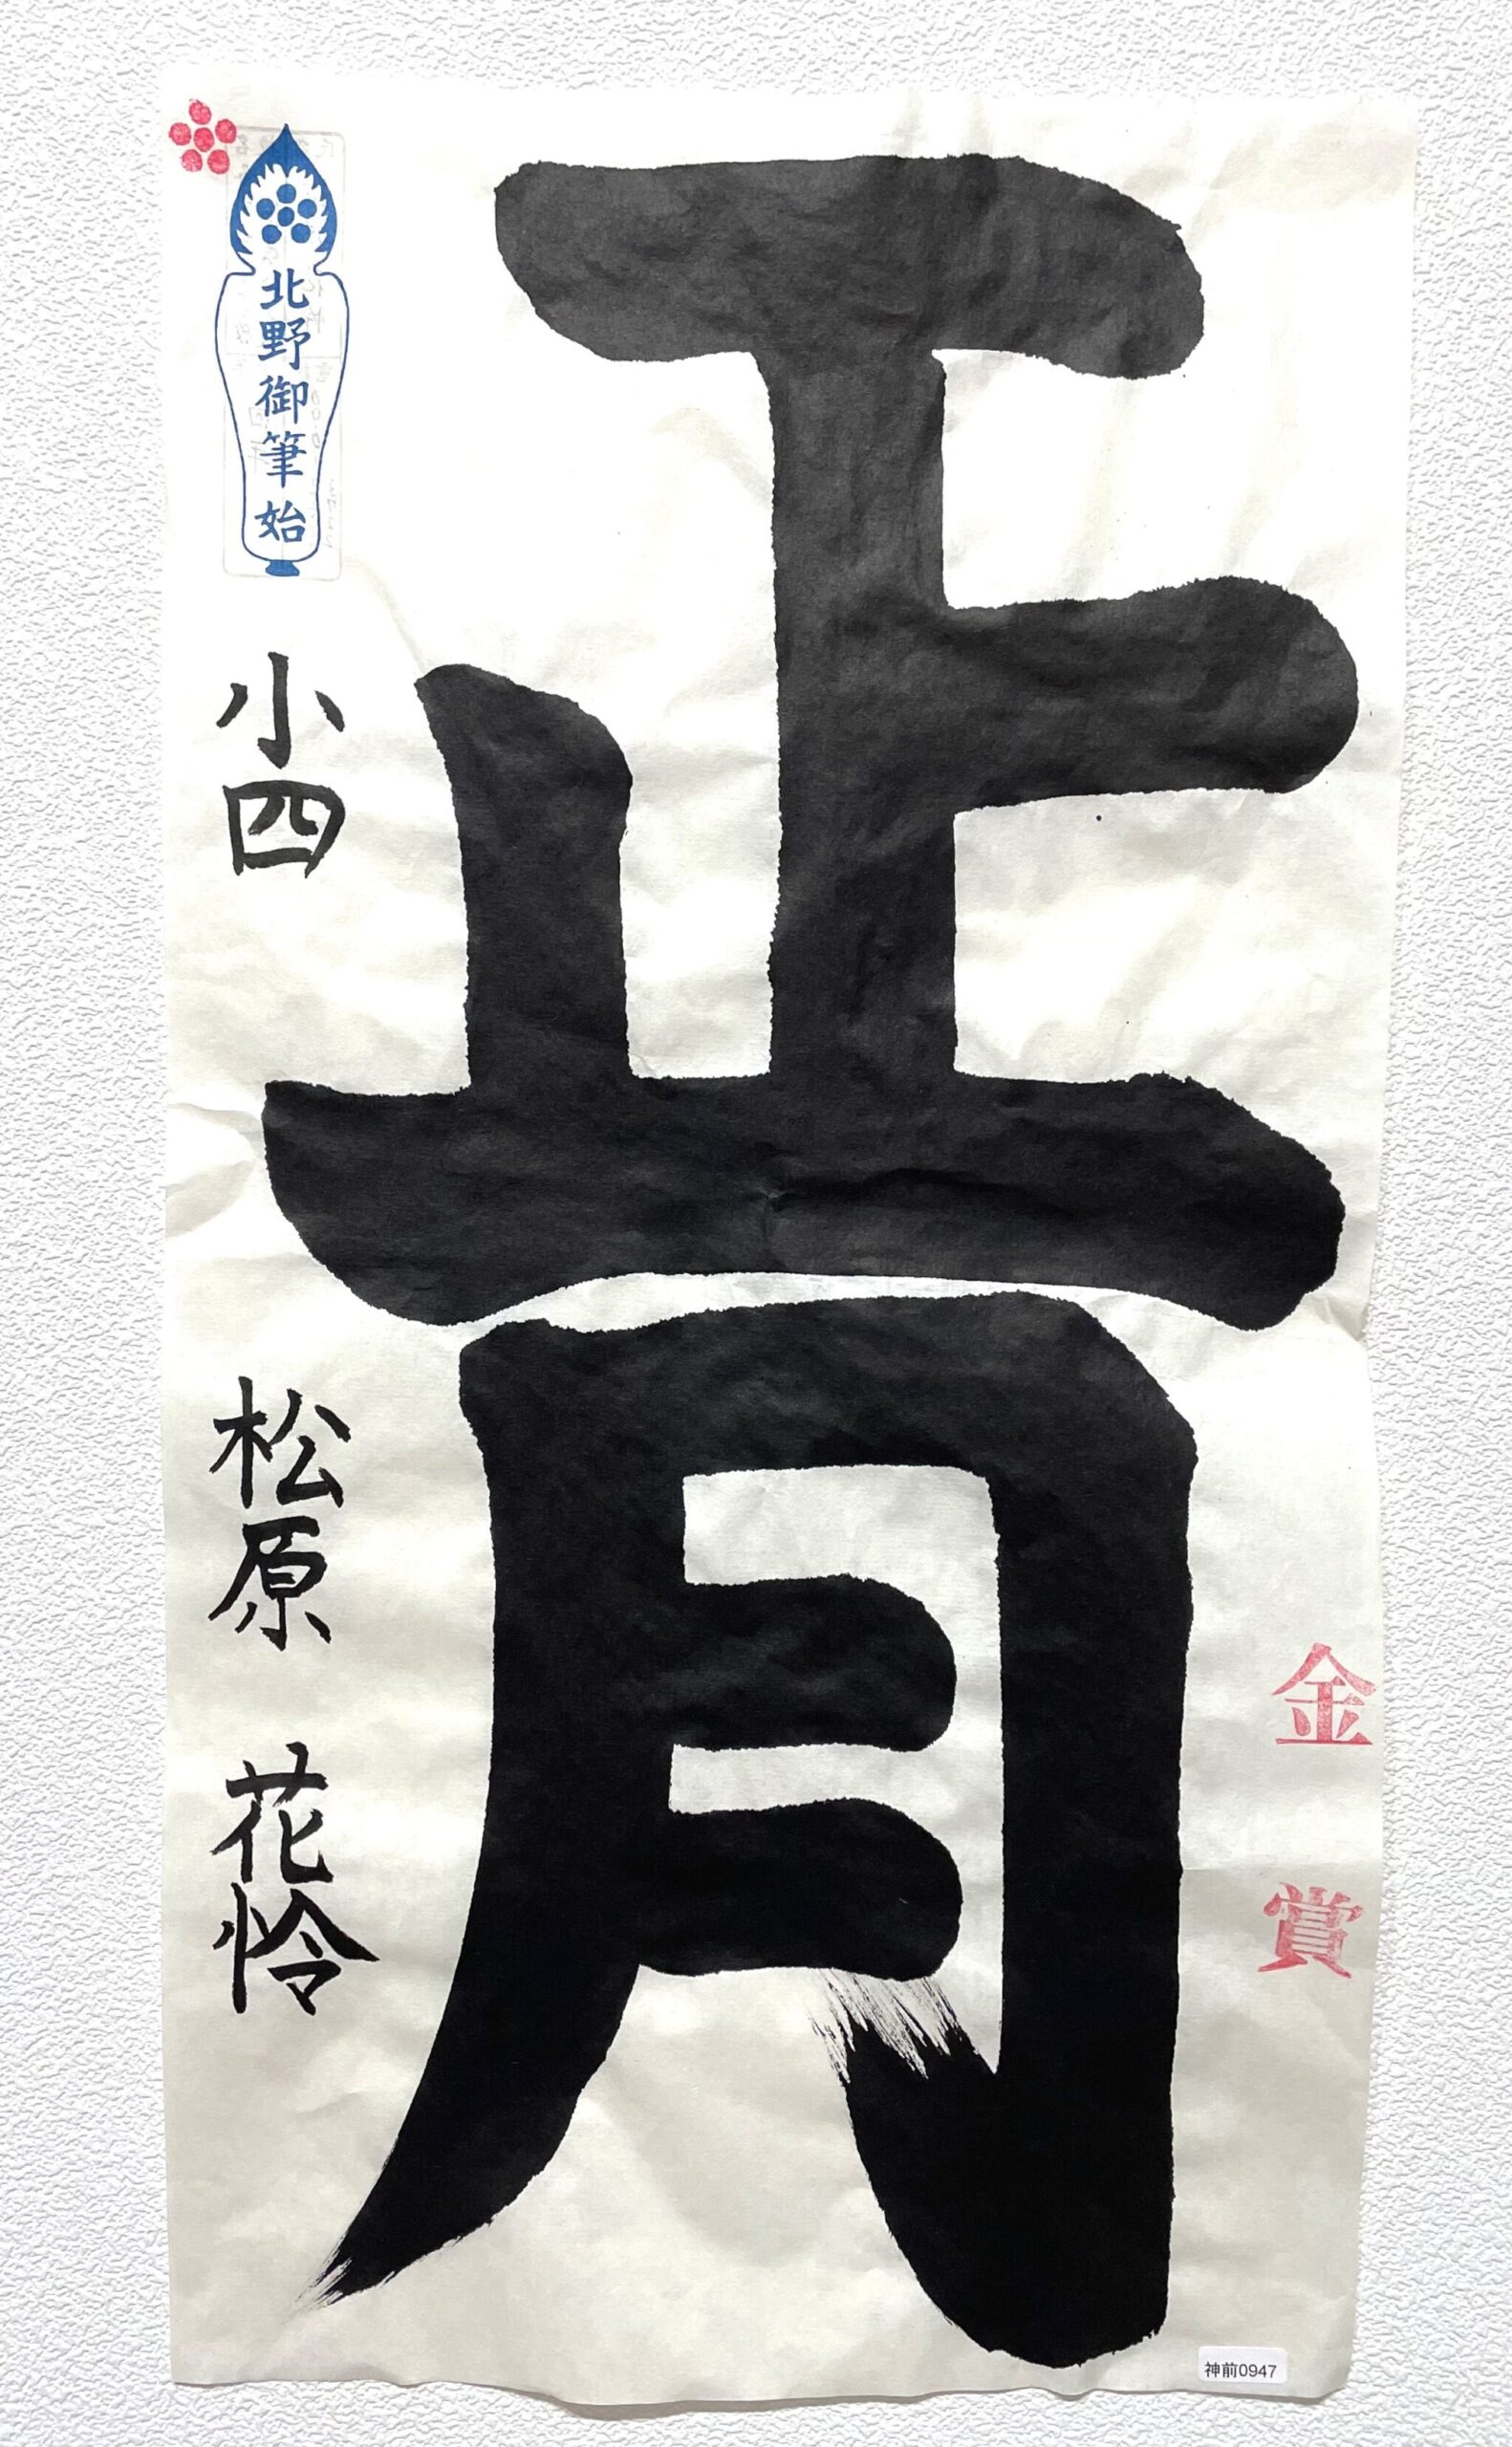 正月
金賞
北野御筆始
小四
松原 花怜
神前0947